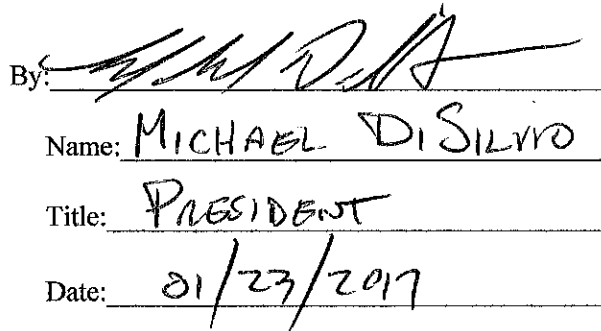 By:
Name: MICHAEL DISILVIO
Title: PRESIDENT
Date: 01/23/2017